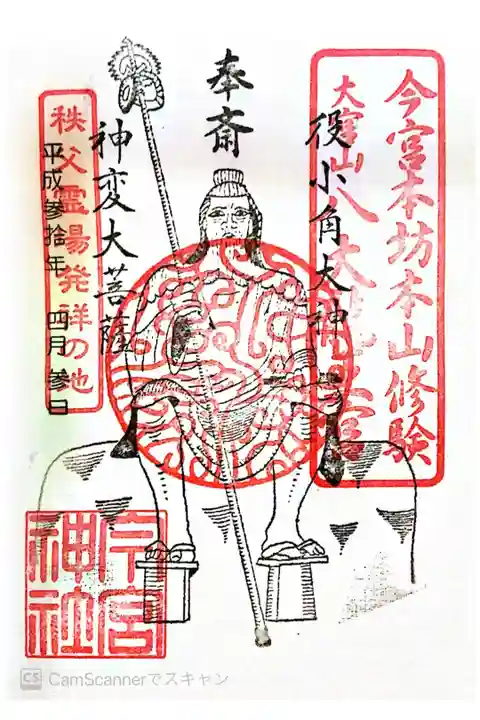 今宮本坊本山修験
大宮山八大
役小角大神
奉斎
神変大菩薩
秩父霊場発祥の地
平成参拾年 四月参日
今宮
神社
CS CamScannerでスキャン